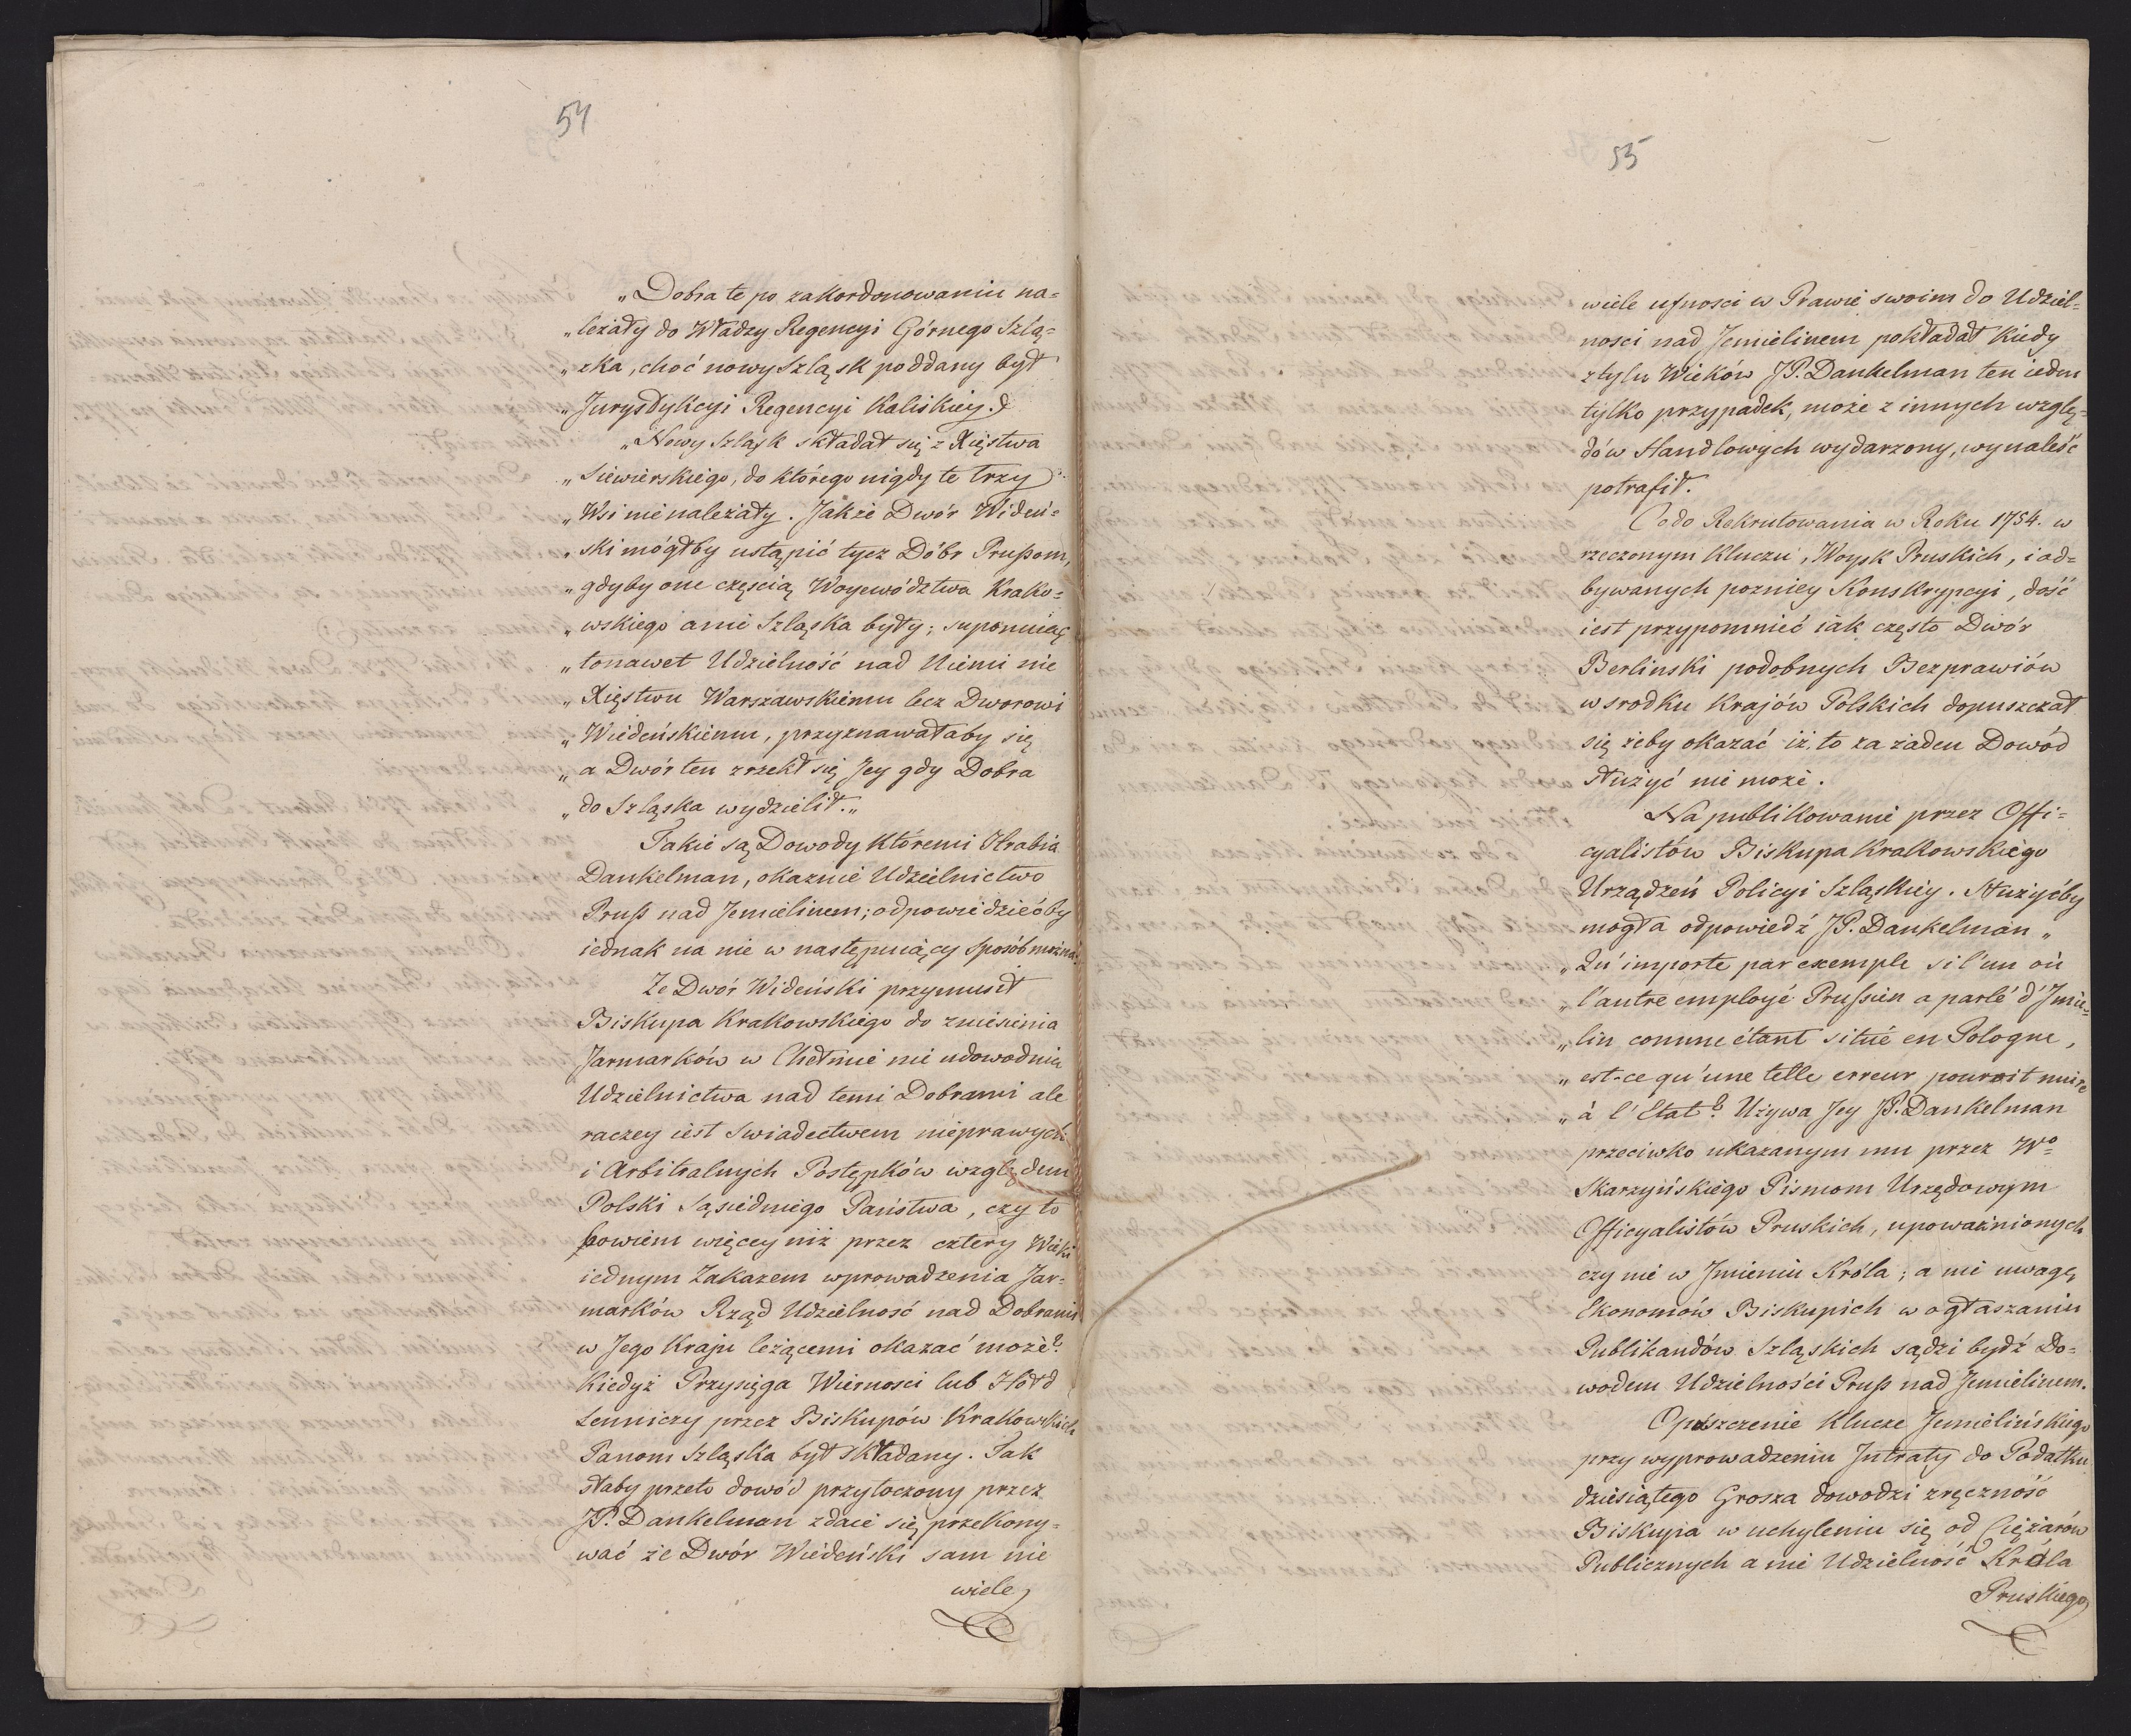 54
„Dobra te po zakordonowaniu na=
„leżały do Władzy Regencyi Górnego Szlą=
„zka, choć nowy Szląsk poddany był
„Jurysdykcyi Regencyi Kaliskiey.
„Nowy Szląsk składał się z Xięstwa
„Siewierskiego, do którego nigdy te trzy
„Wsi nienależały. Jakże Dwór Wideń=
„ski mógłby ustąpić tycz Dóbr Prußom,
„gdyby one częscią Woyewództwa Krako=
„wskiego a nie Szląska były; suponuiąc
„tonawet Udzielność nad Niemi nie
„Xięstwu Warszawskiemu lecz Dworowi
„Wiedeńskiemu, przyznawałaby się
„a Dwór ten zrzekł się Jey gdy Dobra
„do Szląska wydzielił.„
Takie są Dowody któremi Hrabia
Dankelman, okazuie Udzielnictwo
Pruß nad Jemielinem; odpowiedziećby
iednak na nie w następuiący sposób można:
Że Dwór Wideński przymusił
Biskupa Krakowskiego do zniesienia
Jarmarków w Chełmie nie udowodnia
Udzielnictwa nad temi Dobrami ale
raczey iest swiadectwem nieprawych
i Arbitralnych Postępków względem
Polski Sąsiedniego Państwa, czy to
bowiem więcey niż przez cztery Wieki
iednym Zakazem wprowadzenia Jar=
marków Rząd Udzielność nad Dobrami
w Jego Kraju leżącemi okazać może?
Kiedyż Przysięga Wiernosci lub Hołd
Lenniczy przez Biskupów Krakowskich
Panom Szląska był składany. Tak
słaby przeto dowód przytoczony przez
JP. Dankelman zdaie się przekony=
wać że Dwór Wiedeński sam nie
wiele
55
wiele ufnosci w Prawie swoim do Udziel=
nosci nad Jemielinem pokładał kiedy
z tylu Wieków JP. Dankelman ten ieden
tylko przypadek, może z innych wzglę=
dów Handlowych wydarzony, wynaleść
potrafił.
Co do Rekrutowania w Roku 1754. w
rzeczonym Kluczu, Woysk Pruskich, i od=
bywanych pozniey Konskrypcyi, dość
iest przypomnieć iak często Dwór
Berlinski podobnych Bezprawiów
w srodku Krajów Polskich dopuszczał
się żeby okazać iż to za żaden Dowód
służyć nie może.
Na publikowanie przez Offi=
cyalistów Biskupa Krakowskiego
Urządzeń Policyi Szląskiey. Służyćby
mogła odpowiedź JP. Dankelman „
„Qu'importe par exemple si l'un où
„l'autre employé Prussien a parlé d'Jmie=
„lin comme étant situé en Pologne,
„est-ce qu'une telle erreur pouroit nuire
„à l'Etat? Używa Jey JP. Dankelman
przeciwko ukazanym mu przez Wº
Skarzyńskiego Pismom Urzędowym
Officyalistów Pruskich, upoważnionych
czy nie w Jmieniu Króla; a nie uwagę
Ekonomów Biskupich w ogłaszaniu
Publikandów Szląskich sądzi bydź Do=
wodem Udzielności Pruß nad Jemielinem.
Opuszczenie Klucze Jemielińskiego
przy wyprowadzeniu Jntraty do Podatku
dziesiątego Grosza dowodzi zręczność
Biskupia w uchyleniu się od Ciężarów
Publicznych a nie Udzielność Króla
Pruskiego